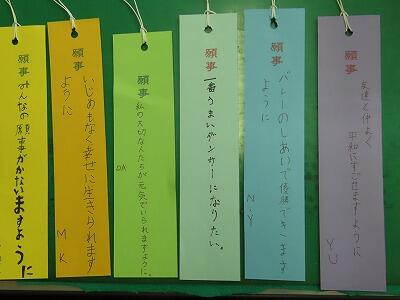 願事
みんなの願事がかないますように
願事
いじめもなく幸せに生きられます
ように
M K
願事
私の大切な人たちが元気でいられますように。
DA
願事
一番うまいダンサーになりたい。
願事
バレーのしあいで優勝できます
ように
N.Y
願事
友達と仲よく
平和にすごせますように
YU